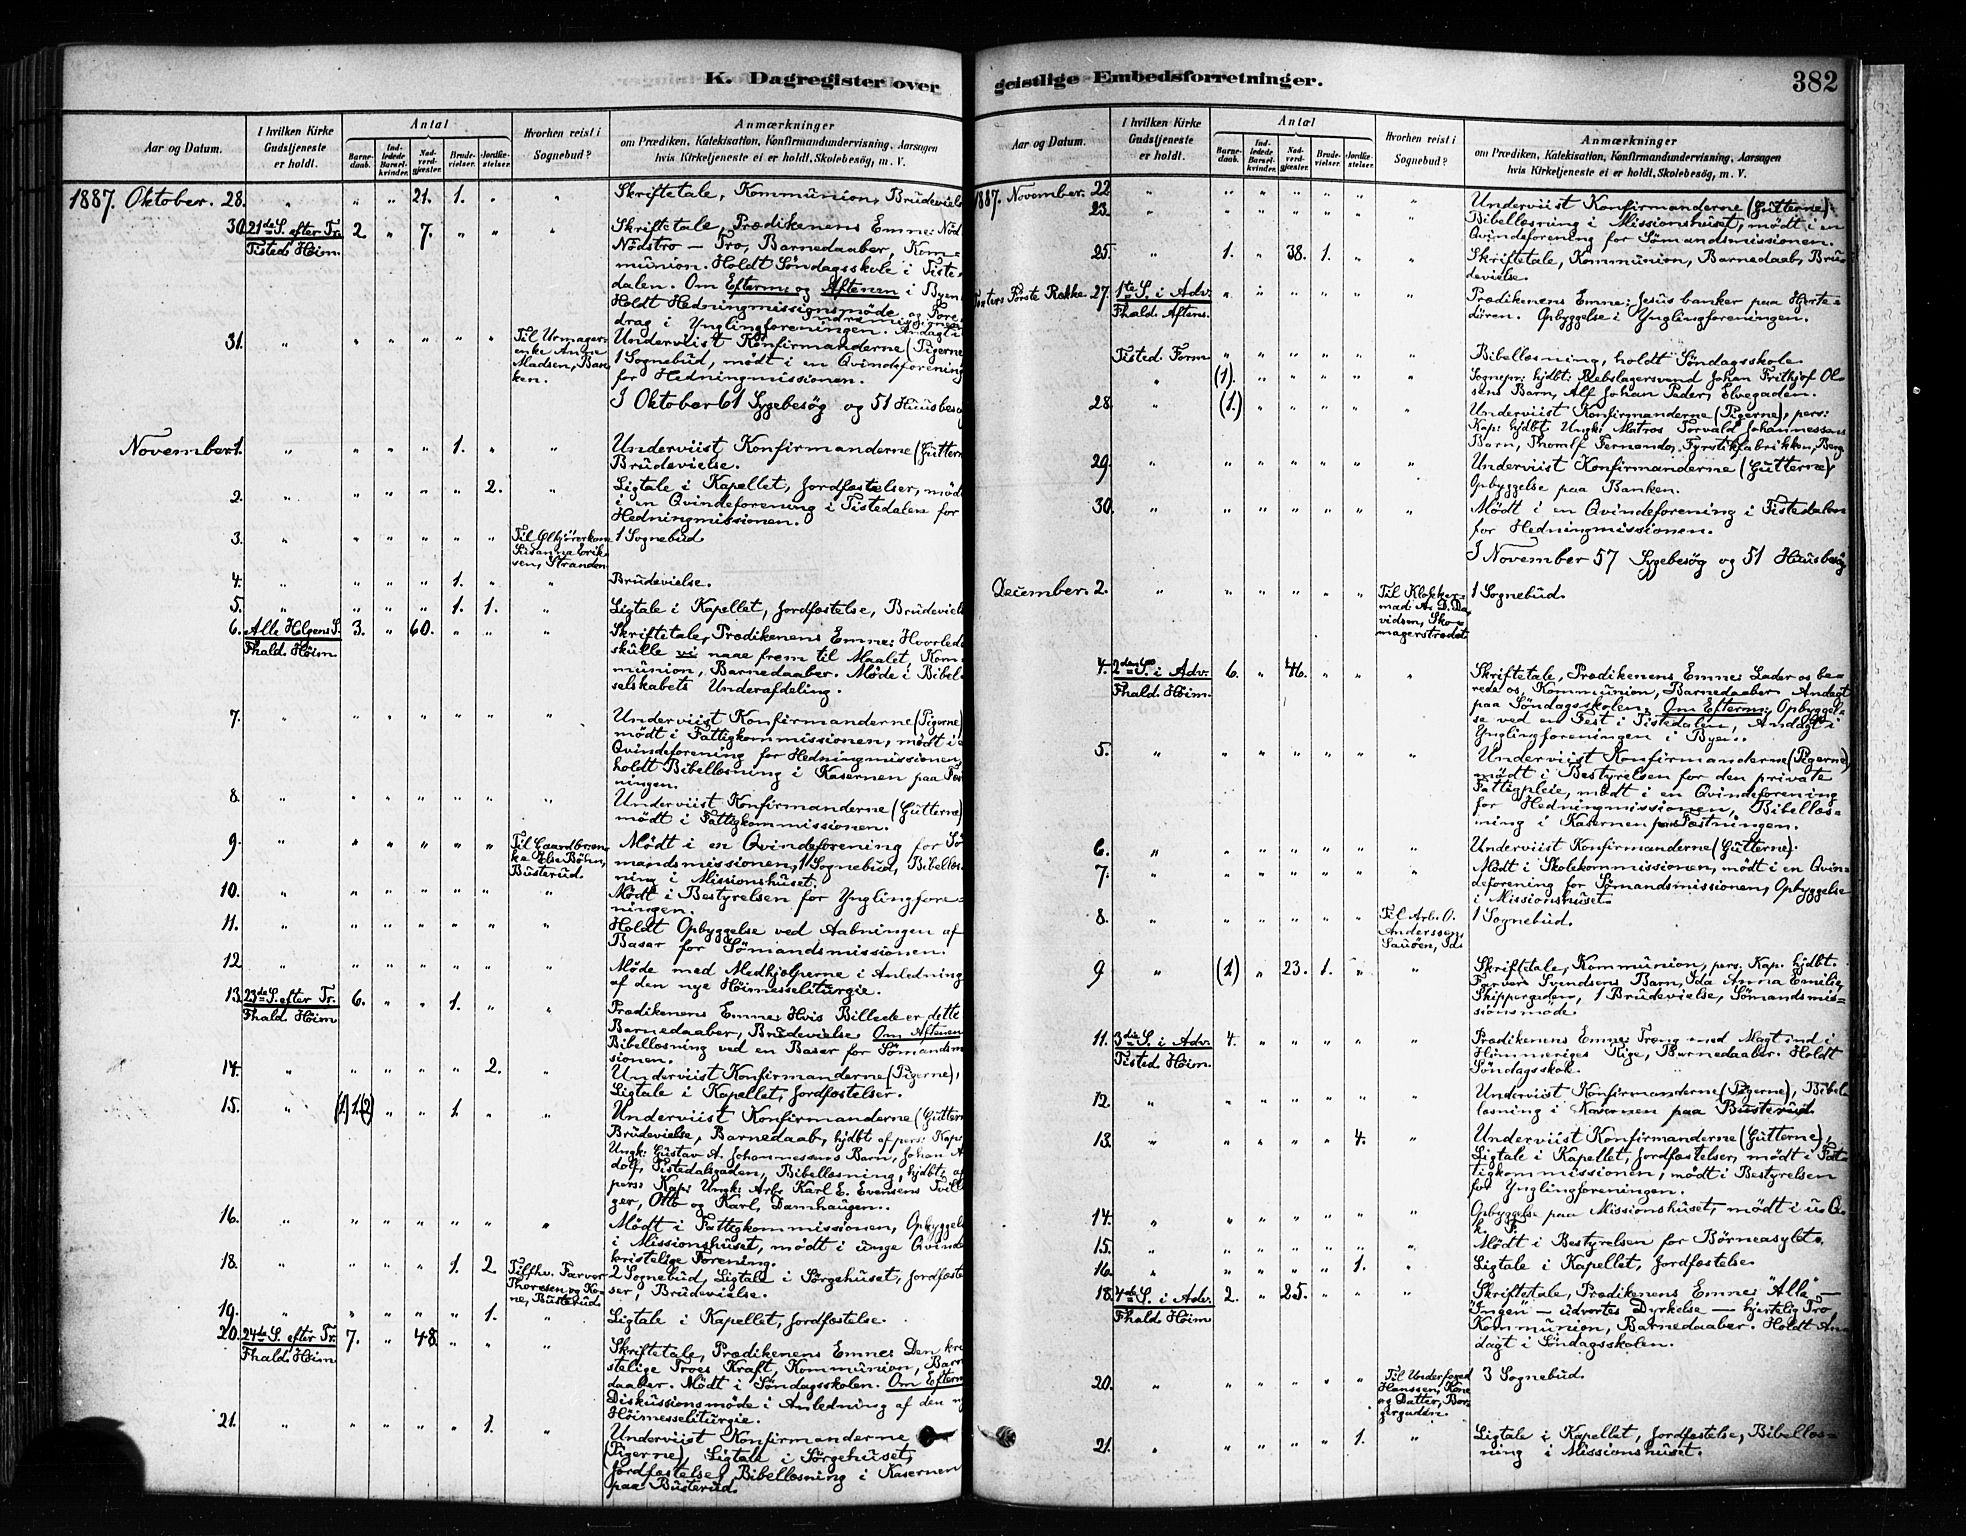 K. Dagregister over
Aar og Datum.
I hvilken Kirke Gudstjeneste er holdt.
Antal
Barnedaab.
Indledede Barselkvinder.
Nadverdgjæster.
Brudevielser.
Jordfæstelser.
Hvorhen reist i Sognebud?
Anmærkninger
om Prædiken, Katekisation, Konfirmandundervisning, Aarsagen
hvis Kirketjeneste ei er holdt, Skolebesøg, m. V.
1887. Oktober. 28. " " " 21. 1. " " Skriftetale, Kommunion, Brudevielse
30. 21de S. efter Tr. 2. " 7. " " " Skriftetale, Prædikenens Emne: Nød
Tisted. Høim. Nødstro – Tro, Barnedaaber, Kom=
munion. Holdt Søndagsskole i Tiste=
dalen. Om Efterm: og Aftenen i Byen
Holdt Hedningmissionsmøde og Fore=
drag i Ynglingforeningen.
31. " " " " " " Til Urmager= Underviist Konfirmanderne (Pigerne)
enke Anne 1 Sognebud, mødt i en Qvindeforening
Madsen, Bak= for Hedningmissionen.
ken.
I Oktober 61 Sygebesøg og 51 Huusbesøg
November 1. " " " " 1. " " Underviist Konfirmanderne (Gutterne
Brudevielse.
2. " " " " " 2. " Ligtale i Kapellet, Jordfæstelser, mødt
i en Qvindeforening i Tistedalen for
Hedningmissionen.
3. " " " " " " Til Ølkjørerkone 1 Sognebud
Susanna Erik=
sen, Stranden
4. " " " " 1. " " Brudevielse.
5. " " " " 1. 1. " Ligtale i Kapellet, Jordfæstelse, Brudevielse
6. Alle Helgens S. 3. " 60. " " " Skriftetale, Prædikenens Emne: Hvorledes
Fhald. Høim skulle vi naae frem til Maalet, Kom=
munion, Barnedaaber. Møde i Bibel=
selskabets Underafdeling.
7. " " " " " " " Underviist Konfirmanderne (Pigerne)
mødt i Fattigkommissionen, mødt i
Qvindeforening for Hedningmissionen,
holdt Bibellæsning i Kasernen paa Fæst
ningen.
8. " " " " " " " Underviist Konfirmanderne (Gutterne)
mødt i Fattigkommissionen.
9. " " " " " " Til Gaardbr.en= Mødt i en Qvindeforening for Sø
ke Else Bøhn, mandsmissionen, 1 Sognebud, Bibellæs
Busterud. ning i Missionshuset.
10. " " " " " " " Mødt i Bestyrelsen for Ynglingfore=
ningen.
11. " " " " " " " Holdt Opbyggelse ved Aabningen af
Basar for Sømandsmissionen.
12 " " " " " " " Møde med Medhjælperne i Anledning
af den nye Høimesseliturgie.
13. 23de S. efter Tr. 6. " " 1. " " Prædikenens Emne: Hvis Billede er dette
Fhald. Høim Barnedaaber, Brudevielse. Om Aftenen
Bibellæsning ved en Basar for Sømandsmis
sionen.
14. " " " " " 2. " Underviist Konfirmanderne (Pigerne),
Ligtale i Kapellet, Jordfæstelser.
15. " (1) 1. (2) " " 1. " " Underviist Konfirmanderne (Gutterne
Brudevielse, Barnedaab, hjdbt af pers: Kap:
Ungk: Gustav A. Johannessens Barn, Johan A
dolf, Tistedalsgaden, Bibellæsning, hjdbt: af
pers: Kap: Ungk: Arb: Karl E. Evensens Tvill
ger, Otto og Karl, Damhaugen.
16. " " " " " " " Mødt i Fattigkommissionen, Opbyggelse
i Missionshuset, mødt i unge Qvinde
kristelige Forening.
18. " " " " 1. 2. Til fhv. Farver 2 Sognebud, Ligtale i Sørgehuset, Jordfæstel
Thoresen og Ko= ser, Brudevielse.
ne, Busterud.
19. " " " " " 1. " Ligtale i Kapellet, Jordfæstelse.
20. 24de S. efter Tr. 7. " 48. " " " Skriftetale, Prædikenens Emne: Den kri
Fhald. Høim stelige Troes Kraft, Kommunion, Barne
daaber. Mødt i Søndagsskolen. Om Efterm
Diskussionsmøde i Anledning af den n
Høimesseliturgie.
21. " " " " " 1. " Underviist Konfirmanderne
(Pigerne), Ligtale i Sørgehuset,
Jordfæstelse, Bibellæsning i Kasernen
paa Busterud.
geistlige Embedsforretninger.
382
Aar og Datum.
I hvilken Kirke Gudstjeneste er holdt.
Antal
Barnedaab.
Indledede Barselkvinder.
Nadverdgjæster.
Brudevielser.
Jordfæstelser.
Hvorhen reist i Sognebud?
Anmærkninger
om Prædiken, Katekisation, Konfirmandundervisning, Aarsagen
hvis Kirketjeneste ei er holdt, Skolebesøg, m. V.
1887. November. 22. " " " " " " " Underviist Konfirmanderne (Gutterne)
23. " " " " " " " Bibellæsning i Missionshuset, mødt i en
Qvindeforening for Sømandsmissionen.
25. " 1. " 38. 1. " " Skriftetale, Kommunion, Barnedaab, Bru=
devielse.
Texters Første Række. 27. 1ste S. i Adv. " " " " " " Prædikenens Emne: Jesus banker paa Hjerte=
Fhald. Aftens. døren. Opbyggelse i Ynglingforeningen.
Tisted. Form " " " " " " Bibellæsning, holdt Søndagsskole.
" (1). " " " " " Sognepr: hjdbt: Rebslagersvend Johan Frithjof Ol=
sens Barn, Alf Johan Peder, Elvegaden.
28. " (1.) " " " " " Underviist Konfirmanderne (Pigerne), pers:
Kap: hjdbt. Ungk: Matros Torvald Johannessens
Barn, Thoralf Fernando, Fyrstikfabrikken, Berg
29. " " " " " " " Underviist Konfirmanderne (Gutterne)
Opbyggelse paa Banken.
30. " " " " " " " Mødt i en Qvindeforening i Tistedalen
for Hedningmissionen.
I November 57 Sygebesøg og 51 Huusbesøg
December. 2. " " " " " " Til Klokker= 1 Sognebud.
mad: A. D. Da
vidsen, Sko=
magerstrædet
4. 2den S. i Adv. 6. " 46. " " " Skriftetale, Prædikenens Emne: Lader os be=
Fhald. Høim. rede os, Kommunion, Barnedaaber. Andagt
paa Søndagsskolen. Om Efterm: Opbyggel=
se ved en Fest i Tistedalen, Andagt i
Ynglingforeningen i Byen.
5. " " " " " " " Underviist Konfirmanderne (Pigerne)
mødt i Bestyrelsen for den private
Fattigpleie, mødt i en Qvindeforening
for Hedningmissionen, Bibellæs=
ning i Kasernen paa Fæstningen.
6. " " " " " " " Underviist Konfirmanderne (Gutterne).
7. " " " " " " " Mødt i Skolekommissionen, mødt i en Qvin=
deforening for Sømandsmissionen, Opbyggelse
i Missionshuset.
8. " " " " " " Til Arb. O. 1 Sognebud.
Anderssen
Sauøen, Id:
9 " (1) " 23. 1. " " Skriftetale, Kommunion, pers. Kap. hjdbt.
Farver Svendsens Barn, Ida Anna Emilie,
Skippergaden, 1 Brudevielse, Sømandsmis=
sionsmøde.
11. 3die S. i Adv. 4. " " " " " Prædikenens Emne: Træng med Magt ind i
Tisted. Høim. Himmeriges Rige, Barnedaaber. Holdt
Søndagsskole.
12. " " " " " " " Underviist Konfirmanderne (Pigerne), Bibel=
læsning i Kasernen paa Busterud.
13. " " " " " 4. " Underviist Konfirmanderne (Gutterne),
Ligtale i Kapellet, Jordfæstelser, mødt i Fat=
tigkommissionen, mødt i Bestyrelsen
for Ynglingforeningen.
14. " " " " " " " Opbyggelse paa Missionshuset, mødt i u. Q.
k. F.
15. " " " " " " " Mødt i Bestyrelsen for Børneasylet.
16. " " " " " 1. " Ligtale i Kapellet, Jordfæstelse.
18. 4de S. i Adv. 2. " 25. " " " Skriftetale, Prædikenens Emne: "Alle" –
Fhald. Høim "Ingen" – udvortes Dyrkelse – hjertelig Tro,
Kommunion, Barnedaaber. Holdt An=
dagt i Søndagsskolen.
20. " " " " " " Til Underfoged 3 Sognebud.
Hanssen, Kone
og Datter, Bor=
gergaden.
21. " " " " " 1. " Ligtale i Kapellet, Jordfæstelse, Bibellæs=
ning i Missionshuset.